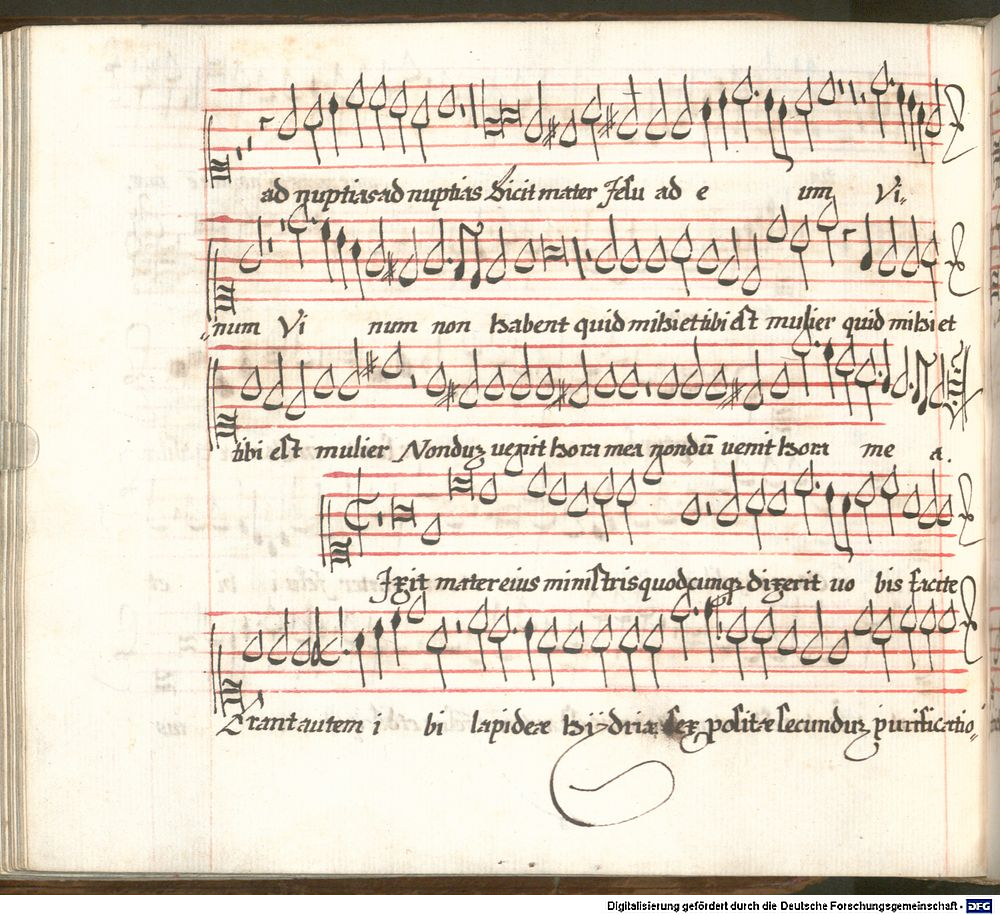 ad nuptias ad nuptias Dicit mater Jesu ad e um Vi-
num Vi num non habent quid mihi et tibi est mulier quid mihi et
tibi est mulier Nonduz uenit hora mea nondū uenit hora me a.
Ixit mater eius ministris quodcunqz dixerit uo bis facite
Erant autem i bi lapideæ hÿdriæ sex positæ secunduz purificatio-
Digitalisierung gefördert durch die Deutsche Forschungsgemeinschaft - DFG